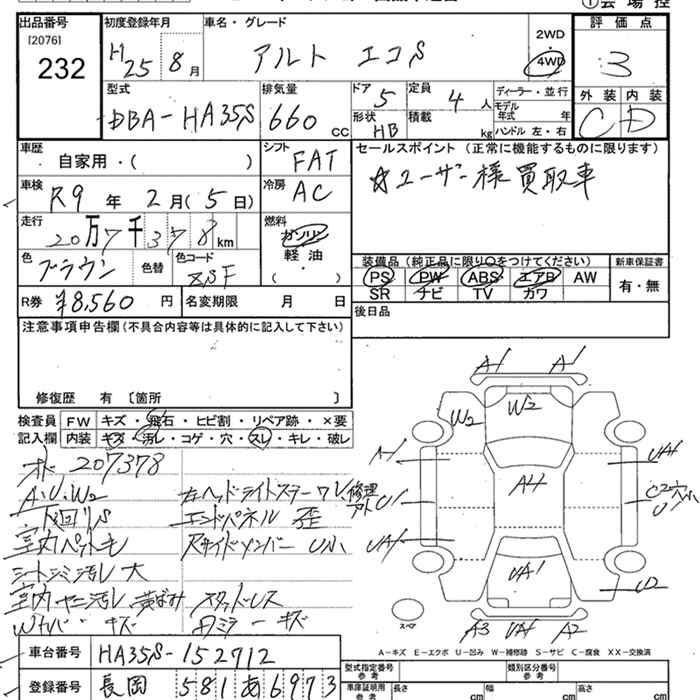 出品番号 [2076] 232
初度登録年月 H25 8月
車名・グレード アルト エコS
2WD
4WD
評価点 3
外装 内装
C D
型式 DBA-HA35S
排気量 660 cc
ドア 5
形状 HB
定員 4人
積載 kg
ディーラー・並行
モデル年式 年
ハンドル 左・右
車歴 自家用・( )
シフト FAT
セールスポイント (正常に機能するものに限ります)
☆ユーザー様買取車
車検 R9年 2月(5日)
冷房 AC
走行 20万7千378km
燃料 ガソリン
軽油
( ・ )
色 ブラウン 色替 色コード ZSF
装備品 (純正品に限り○をつけてください)
PS PW ABS エアB AW
SR ナビ TV カワ
新車保証書
有・無
R券 ¥8,560円 名変期限 月 日
後日品
注意事項申告欄(不具合内容等は具体的に記入して下さい)
修復歴 有 〔箇所 〕
検査員 FW キズ・飛石・ヒビ割・リペア跡・×要
記入欄 内装 キズ・汚レ・コゲ・穴・スレ・キレ・破レ
オド 207378
A.U.W2
下回りS
室内ペット毛
シートシミ汚レ大
室内ヤニ汚レ 黄ばみ
キズ
左ヘッドライトステーワレ修理アト
エンドパネル 歪
Rサイドメンバー U小
スタッドレス
Dミラー キズ
A1 A1
W2 W2
A1 UA1
A4
U1
C2穴
U小
UA1
UA1
U2
A3 UA1 A2
スペア
A-キズ E-エクボ U-凹み W-補修跡 S-サビ C-腐食 XX-交換済
車台番号 HA35S-152712
登録番号 長岡 581 あ 6973
型式指定番号 参考
類別区分番号 参考
車庫証明用 参考 長さ cm 幅 cm 高さ cm